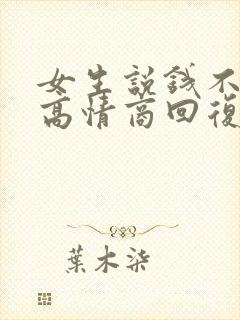 女生説錢不
高情商回復
葉木染